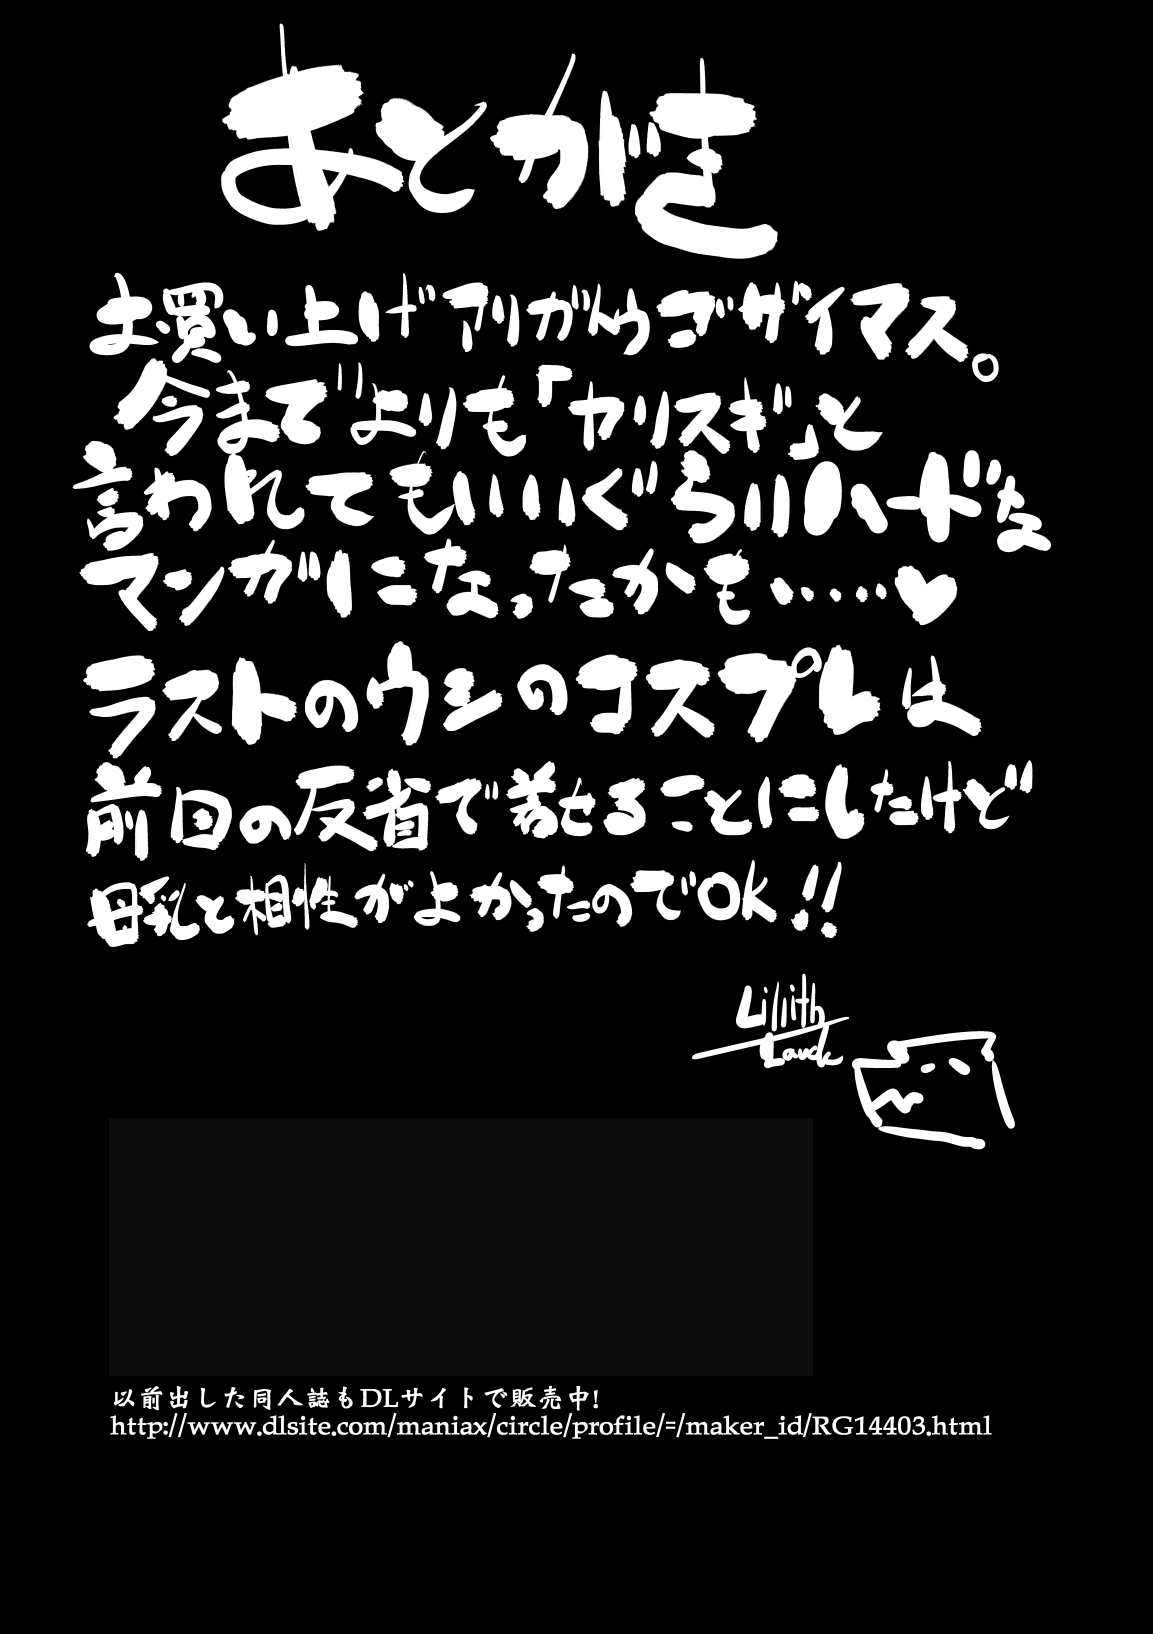 あとがき
お買い上げアリガとウゴザイマス。
今までよりも「ヤリスギ」と
言われてもいいぐらいハードな
マンガになったかも・・・・・♥
ラストのウシのコスプレは
前回の反省で着せることにしたけど
母乳と相性がよかったのでOK!!
Lilith
以前出した同人誌もDLサイトで販売中!
http://www.dlsite.com/maniax/circle/profile/=/maker_id/RG14403.html